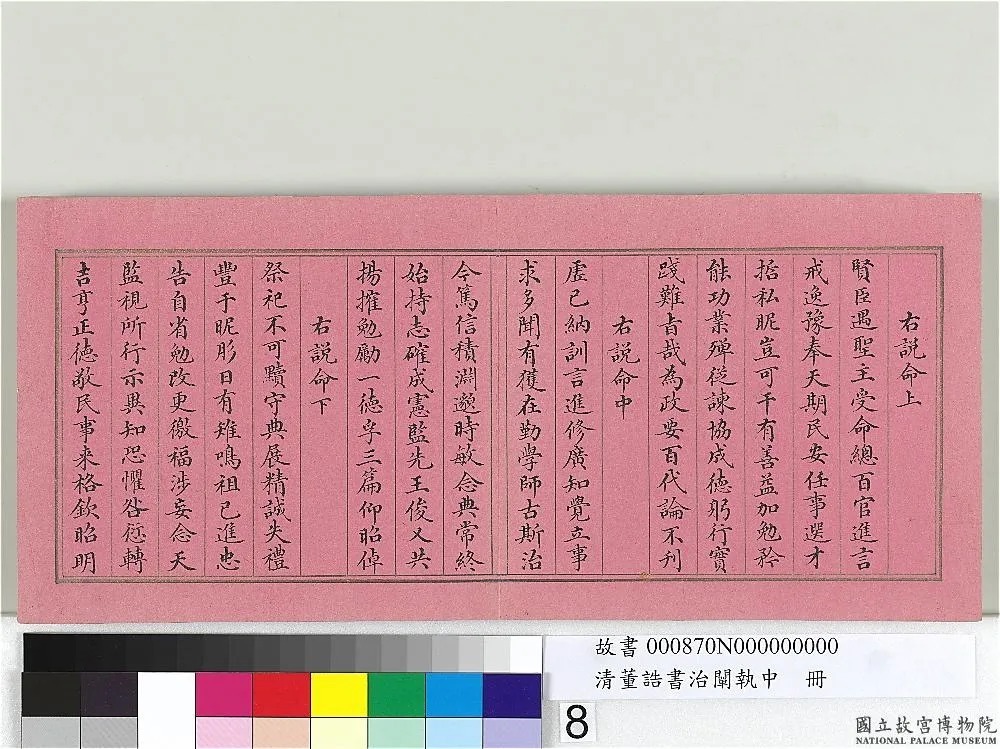 右說命上
賢臣遇聖主受命總百官進言
戒逸豫奉天期民安任事選才
揞私昵豈可干有善益加勉矜
能功業殫從諫協成德躬行實
踐難旨哉為政要百代論不刊
右說命中
虛已納訓言進修廣知覺立事
求多聞有獲在勤學師古斯治
今篤信積淵邈時敏念典常終
始持志確成憲監先王俊乂共
揚搉勉勵一德孚三篇仰昭倬
右說命下
祭祀不可黷守典展精誠失禮
豐于昵肜日有雉鳴祖已進忠
告自省勉改更徼福涉妄念天
監視所行示異知恐懼咎愆轉
吉亨正德敬民事来格欽昭明
故書 000870N000000000
清董誥書治闡執中 冊
8
國立故宮博物院
NATIONAL PALACE MUSEUM